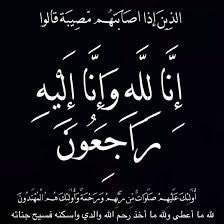 الذين إذا أصابتهم مصيبة قالوا
إِنَّا لِلَّهِ وَإِنَّا إِلَيْهِ
رَاجِعُونَ
أُولَٰئِكَ عَلَيْهِمْ صَلَوَاتٌ مِنْ رَبِّهِمْ وَرَحْمَةٌ وَأُولَٰئِكَ هُمُ الْمُهْتَدُونَ
لله ما أعطى ولله ما أخذ رحم الله والدي واسكنه فسيح جناته